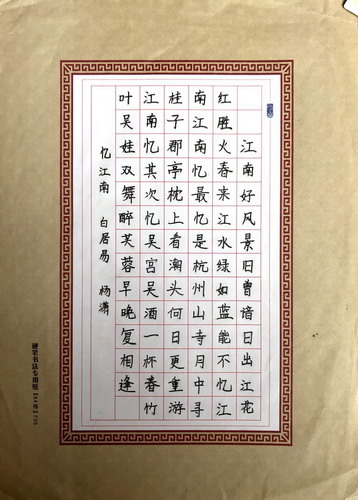 江南好风景旧曾谙日出江花
红胜火春来江水绿如蓝能不忆江
南江南忆最忆是杭州山寺月中寻
桂子郡亭枕上看潮头何日更重游
江南忆其次忆吴宫吴酒一杯春竹
叶吴娃双舞醉芙蓉早晚复相逢
忆江南 白居易 杨潇
硬笔书法专用纸